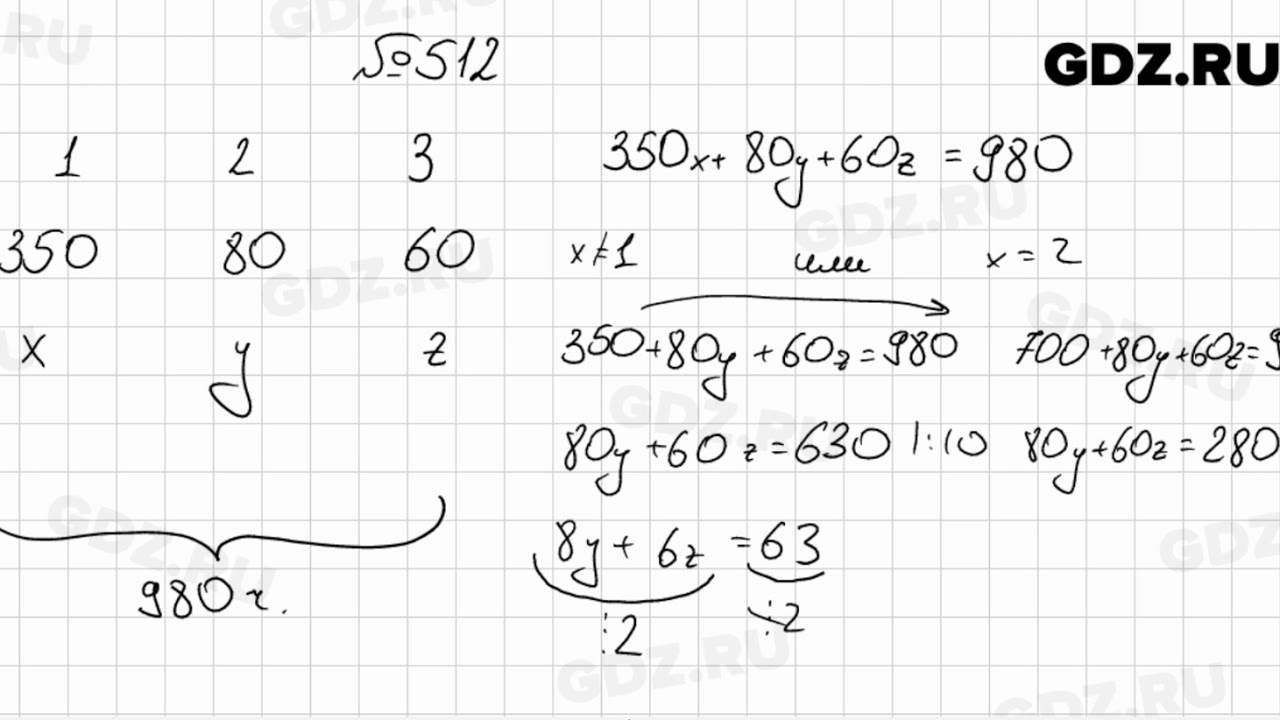 №512
GDZ.RU
1 2 3
350x + 80y + 60z = 980
350 80 60
x≠1 или x = 2
x y z
350 + 80y + 60z = 980
700 + 80y + 60z = 9
80y + 60z = 630 |:10
80y + 60z = 280
8y + 6z = 63
⋮2 ⋮2
980 г.